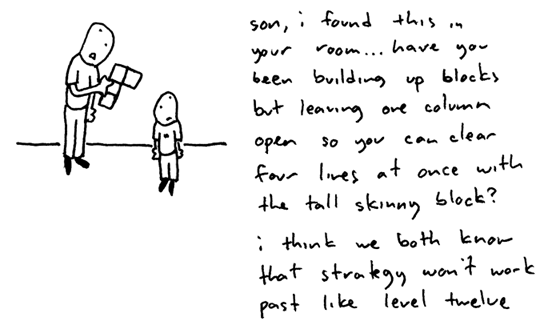 son, i found this in
your room... have you
been building up blocks
but leaving one column
open so you can clear
four lines at once with
the tall skinny block?
i think we both know
that strategy won't work
past like level twelve